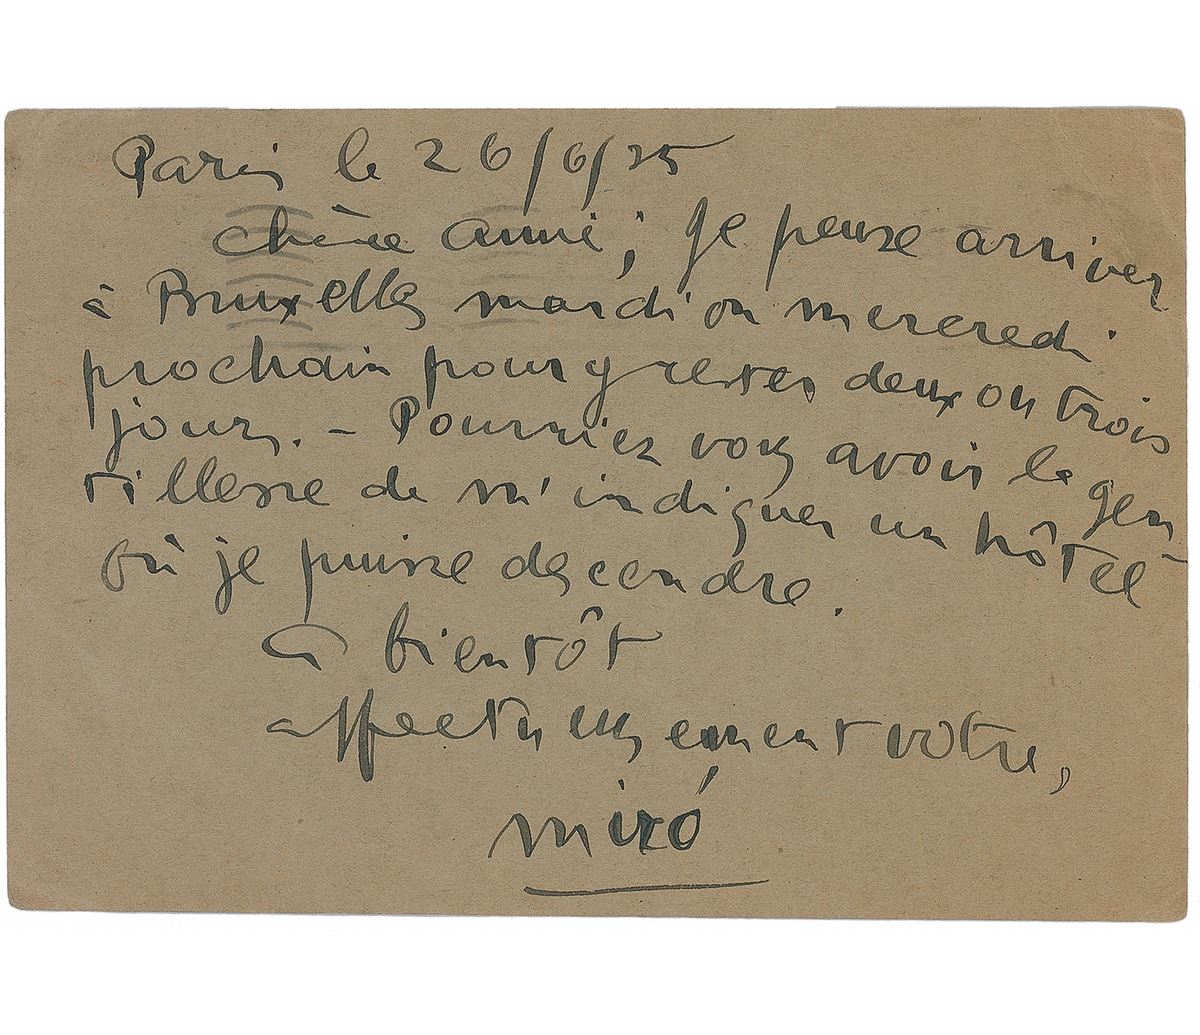 Paris le 26/6/35
chère amie; je pense arriver
à Bruxelles mardi ou mercredi
prochain pour y rester deux ou trois
jours. - Pourriez vous avoir la gen
tillesse de m'indiquer un hôtel
où je puisse descendre.
A bientôt
affectueusement votre,
Miró